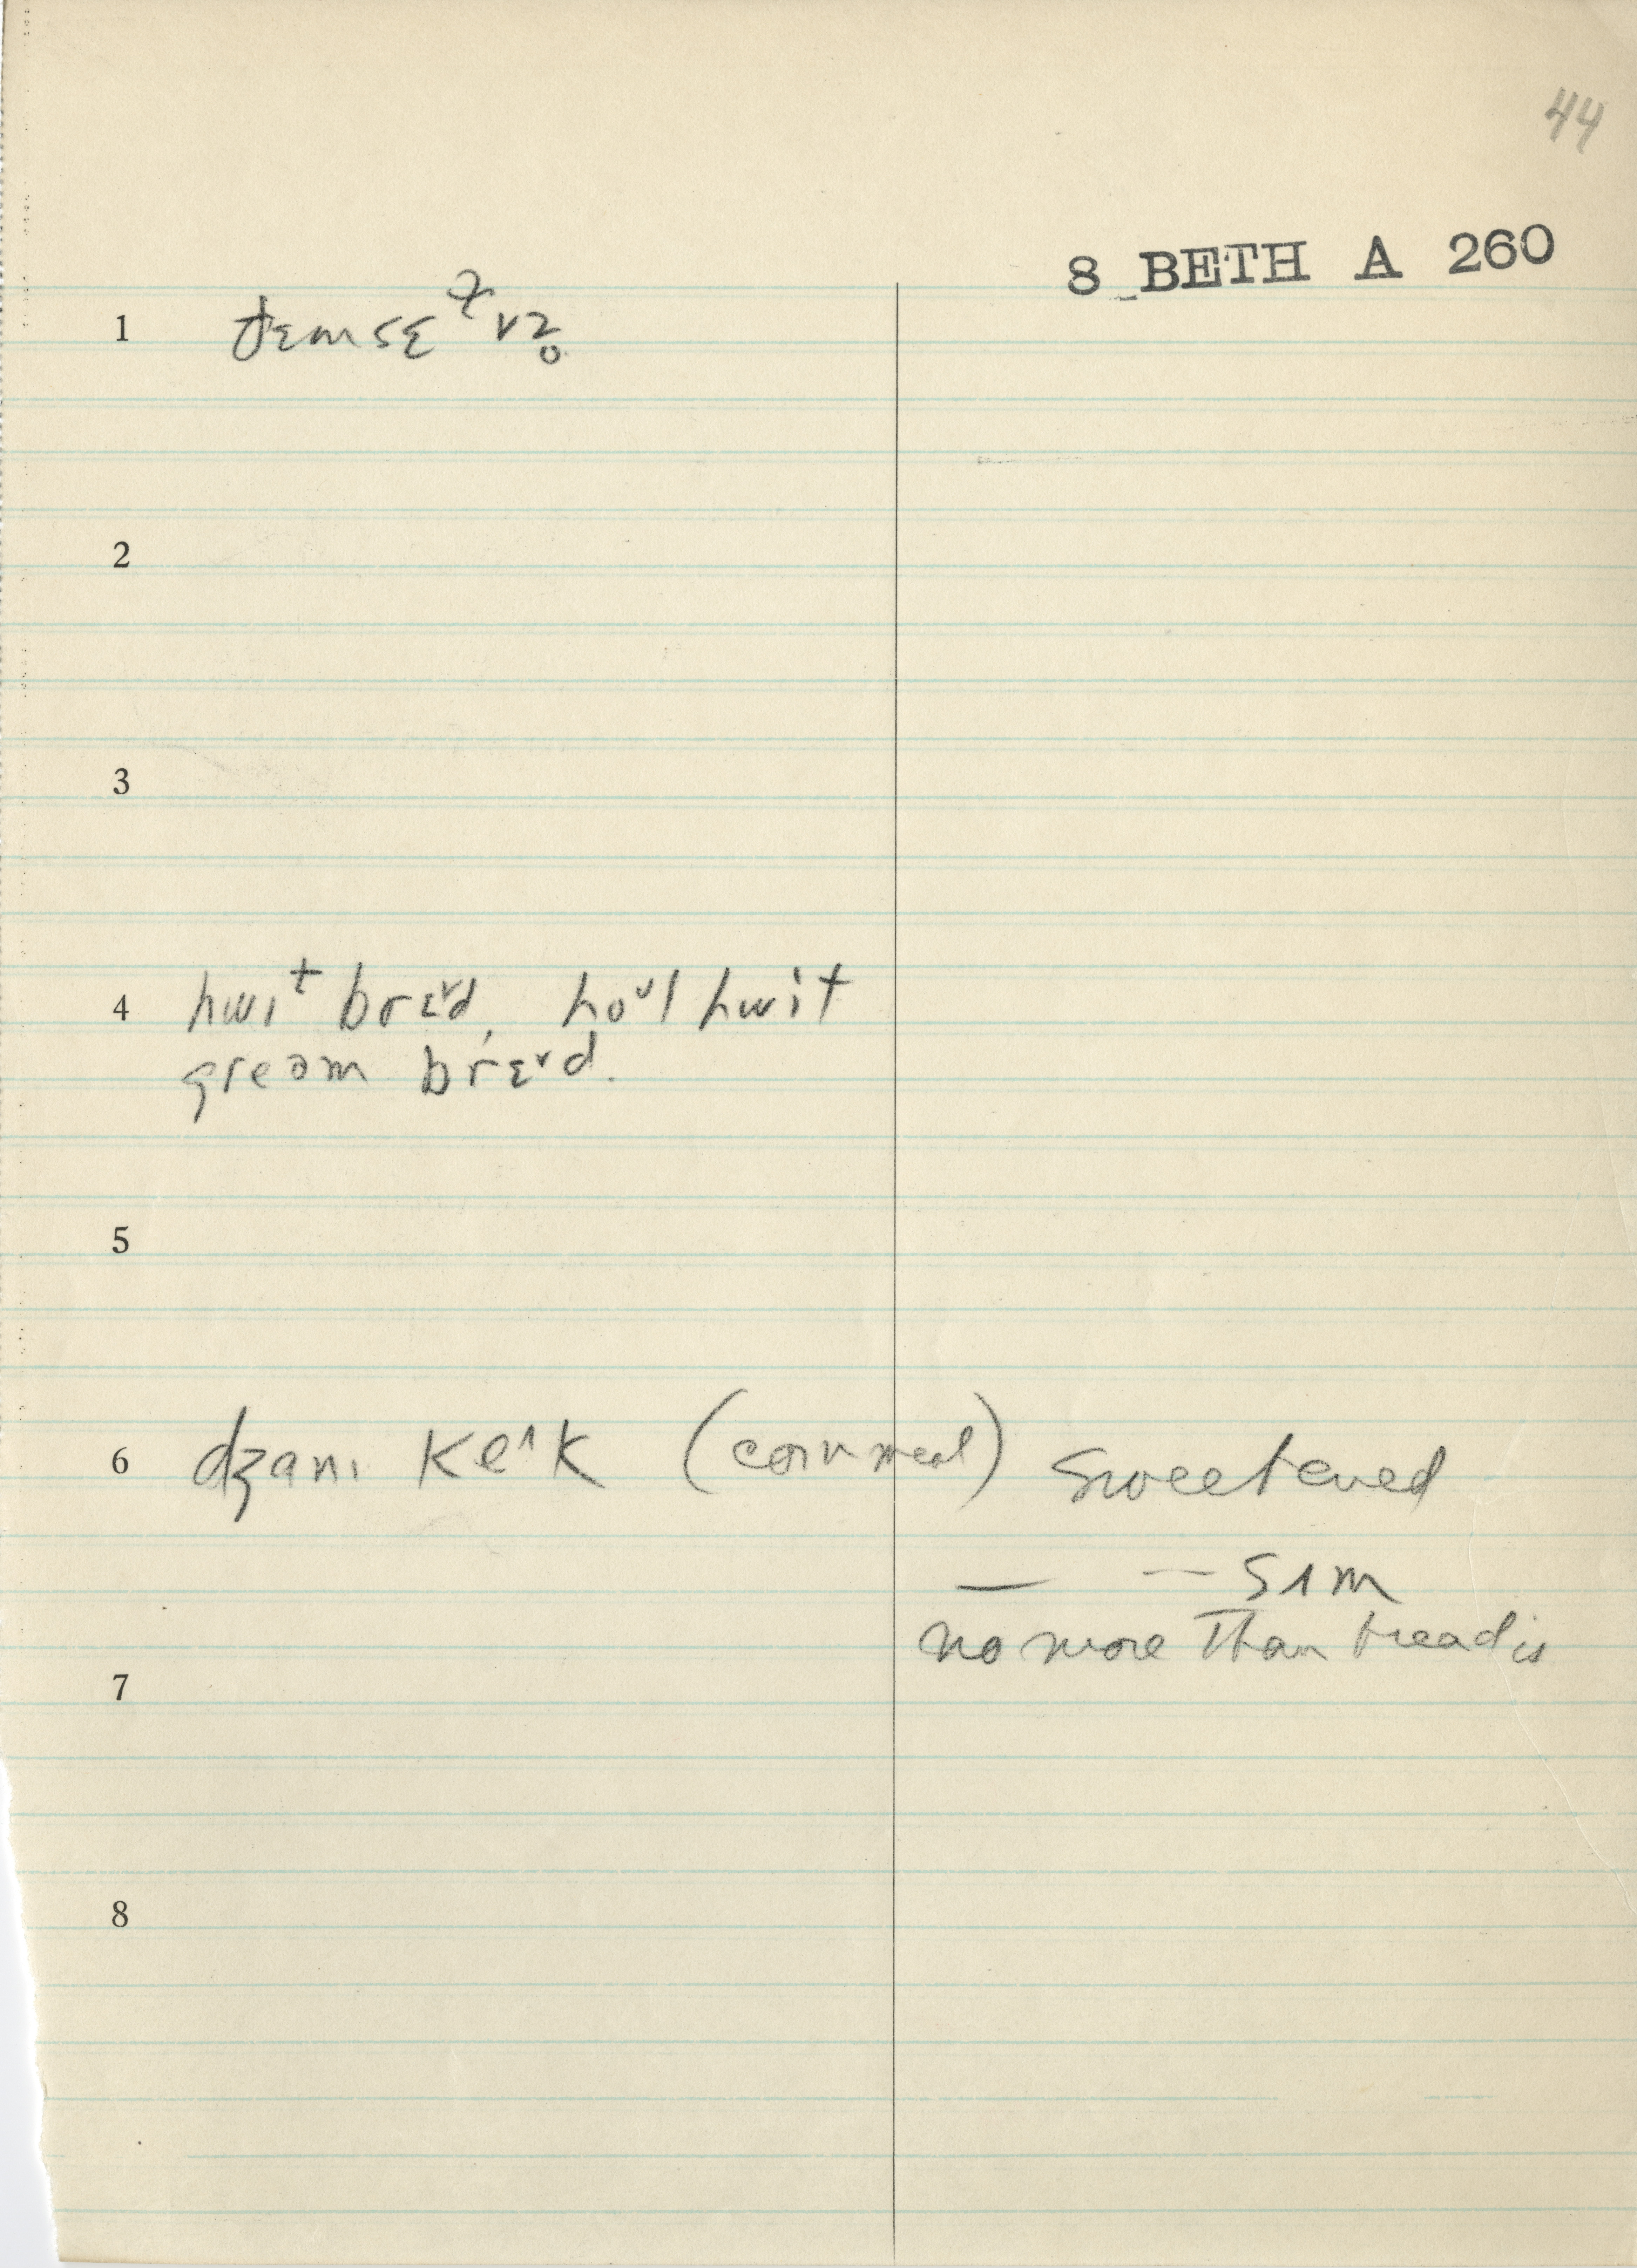 44
8 BETH A 260
1
2
3
4 hwɪt brɛᵛd, hoᵘl hwit
brɛᵛd.
5
6 dʒanɪ keˆk (cornmeal) sweetened
— — sʌm
no more than bread is
7
8